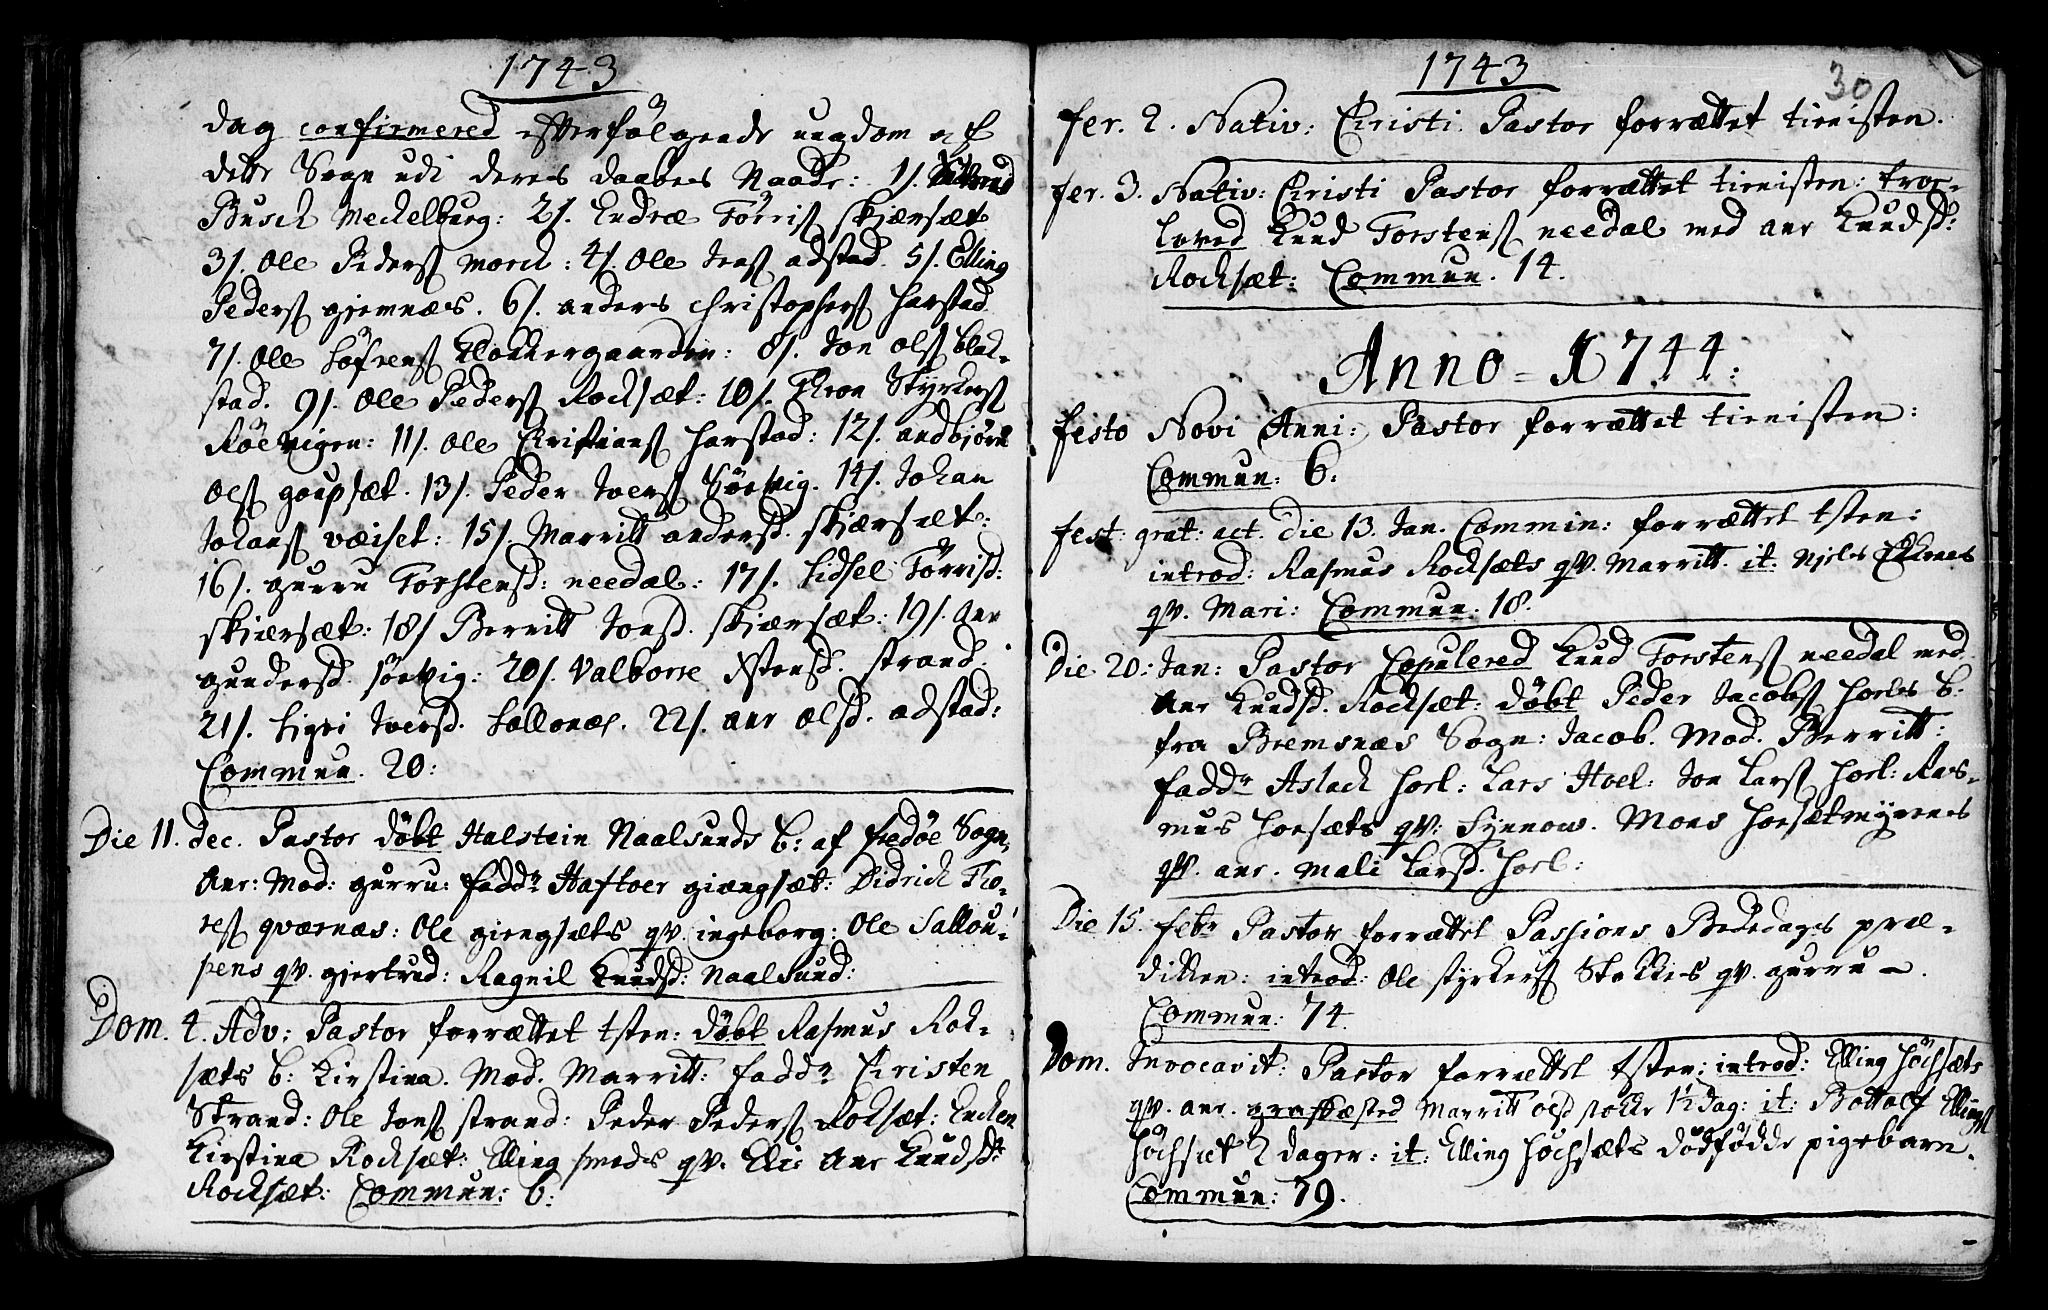 1743
dag confirmered efterfölgende ungdom af
dette Sogn udi deres daabes Naade: 1/.
Busch Meckelburg: 2/. Endræ Törris skjærsæt
3/. Ole Peders morch: 4/. Ole Jens adstad. 5/. Elling
Peders gjemnæs. 6/. anders christophers harstad
7/. Ole Löfrens Klokkergaarden: 8/. Jon ols blak-
stad. 9/. Ole Peders Rocksæt: 10/. Thron Styrkers
Röe vigen: 11/. Ole Christians harstad: 12/. andbjörn
ols goupsæt. 13/. Peder Ivers Sörvig. 14/. Johan
Johans væiset: 15/. Marritt andersd. skjærsæt:
16/. gurru Torstensd: needal: 17/. Sidsel Törrisd:
skjærsæt: 18/ Berritt Jonsd. skjærsæt: 19/. Anr
gundersd. sörvig: 20/. Valborre Ystensd. strand.
21/. Sigri Iversd. Sallonæs. 22/. anr olsd. adstad:
Commun. 20:
Die 11. dec. Pastor döbt Halstein Naalsunds b: af fredöe Sogn,
Anr: Mod: gurru: fadd Haftoer giængsæt: Didrich Tho-
res qværnæs: Ole giengsæts qv. ingeborg: Ole Sallou-
pens qv. gjertrud: Ragnil Knudsd: Naalsund:
Dom. 4. Adv: Pastor forrættet tsten: döbt Rasmus Rok-
sæts b: Kirstina. Mod. Marritt: fadd Christen
Strand: Ole Jons strand: Peder Peders Roksæt: Encken
Kirstina Rocksæt: Elling smeds qv. Elis Anr Knudsd:
Rocksæt: Commun: 6:
1743
30
fer. 2. Nativ: Christi. Pastor forrættet tienisten.
fer. 3. Nativ: Christi Pastor forrættet tienisten: troe-
loved Knud Torstens needal med anr Knudsd:
Rocksæt: Commun. 14.
Anno = 1744:
festo Novi Anni: Pastor forrættet tienisten:
Commun: 6.
fest: grat: act. Die 13. Jan. Commin: forrættet tsten:
introd: Rasmus Rocksæts qv. Marritt. it: Njels Ekrnes
qv. Mari: Commun: 18.
Die 20: Jan: Pastor Copulered Knud Torstens needal med
Anr Knudsd. Rocksæt: döbt Peder Jacobs horls b:
fra Bremsnæs Sogn: Jacob. Mod. Berritt:
fadd Aslach horl: Lars Hoel: Jon Lars horl: Ras-
mus horsæts qv: Synnow. Mons horsætmyrenes
qv. anr. Mali Larsd. horl:
Die 15. febr Pastor forrættet Passions Bededags præ-
diken: introd: Ole styrkers Stokkes qv. gurru.
Commun: 74.
Dom. Invocavit: Pastor forrættet tsten: introd: Elling höchsæts
qv. anr. grafkæsted Marritt olsd stokke 1½ dag: it: Bottolf Ellings
höchsæt 2 dager: it: Elling höchsæts dödfödde pigebarn.
Commun: 79.